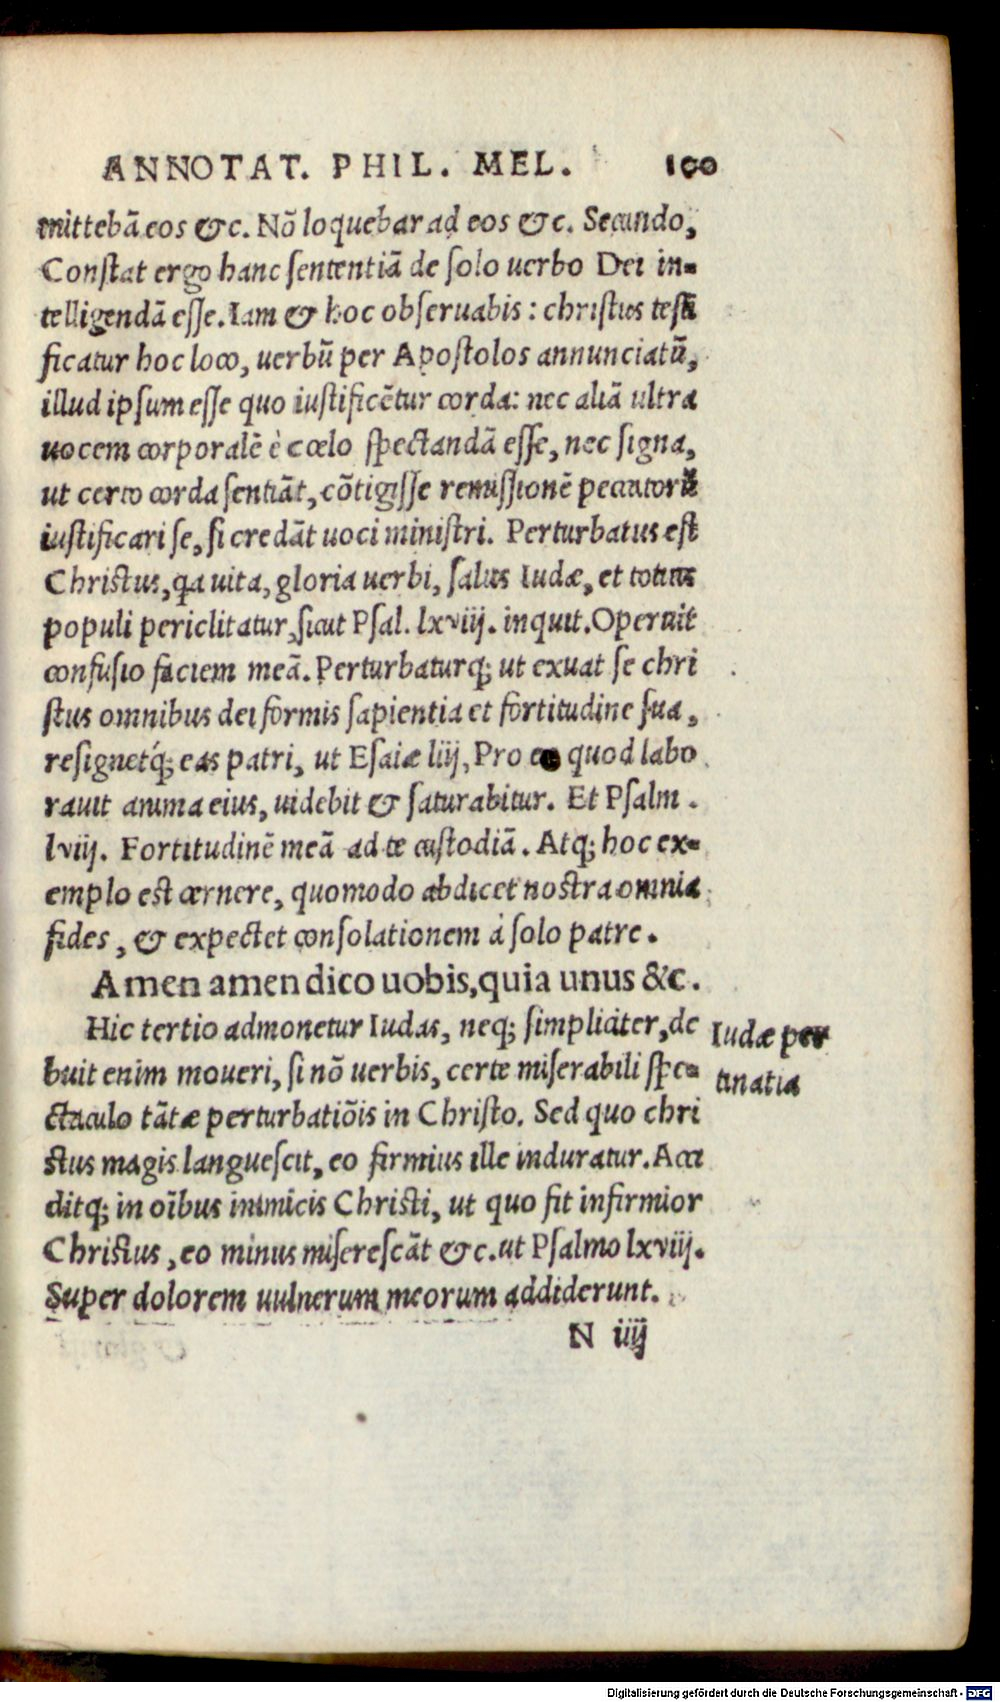 ANNOTAT. PHIL. MEL. 100
mittebā eos &c. Nō loquebar ad eos &c. Secundo,
Constat ergo hanc sententiā de solo uerbo Dei in=
telligendā esse. Iam & hoc obseruabis: christus testi
ficatur hoc loco, uerbū per Apostolos annunciatū,
illud ipsum esse quo iustificētur corda: nec aliā ultra
uocem corporalē è cœlo spectandā esse, nec signa,
ut certo corda sentiāt, cōtigisse remissionē peccatorū
iustificari se, si credāt uoci ministri. Perturbatus est
Christus, qa uita, gloria uerbi, salus Iudæ, et totius
populi periclitatur, sicut Psal. lxviij. inquit. Operuit
confusio faciem meā. Perturbaturq; ut exuat se chri
stus omnibus dei formis sapientia et fortitudine sua,
resignetq́; eas patri, ut Esaiæ liij, Pro eo quod labo
rauit anima eius, uidebit & saturabitur. Et Psalm.
lviij. Fortitudinē meā ad te custodiā. Atq; hoc ex=
emplo est cernere, quomodo abdicet nostra omnia
fides, & expectet consolationem à solo patre.
Amen amen dico uobis, quia unus &c.
Hic tertio admonetur Iudas, neq; simpliciter, de
Iudæ per
buit enim moueri, si nō uerbis, certe miserabili spe=
tinatia
ctaculo tātæ perturbatiōis in Christo. Sed quo chri
stus magis languescit, eo firmius ille induratur. Acci
ditq; in oībus inimicis Christi, ut quo fit infirmior
Christus, eo minus miserescāt &c. ut Psalmo lxviij.
Super dolorem uulnerum meorum addiderunt.
N iiij
Digitalisierung gefördert durch die Deutsche Forschungsgemeinschaft - DFG